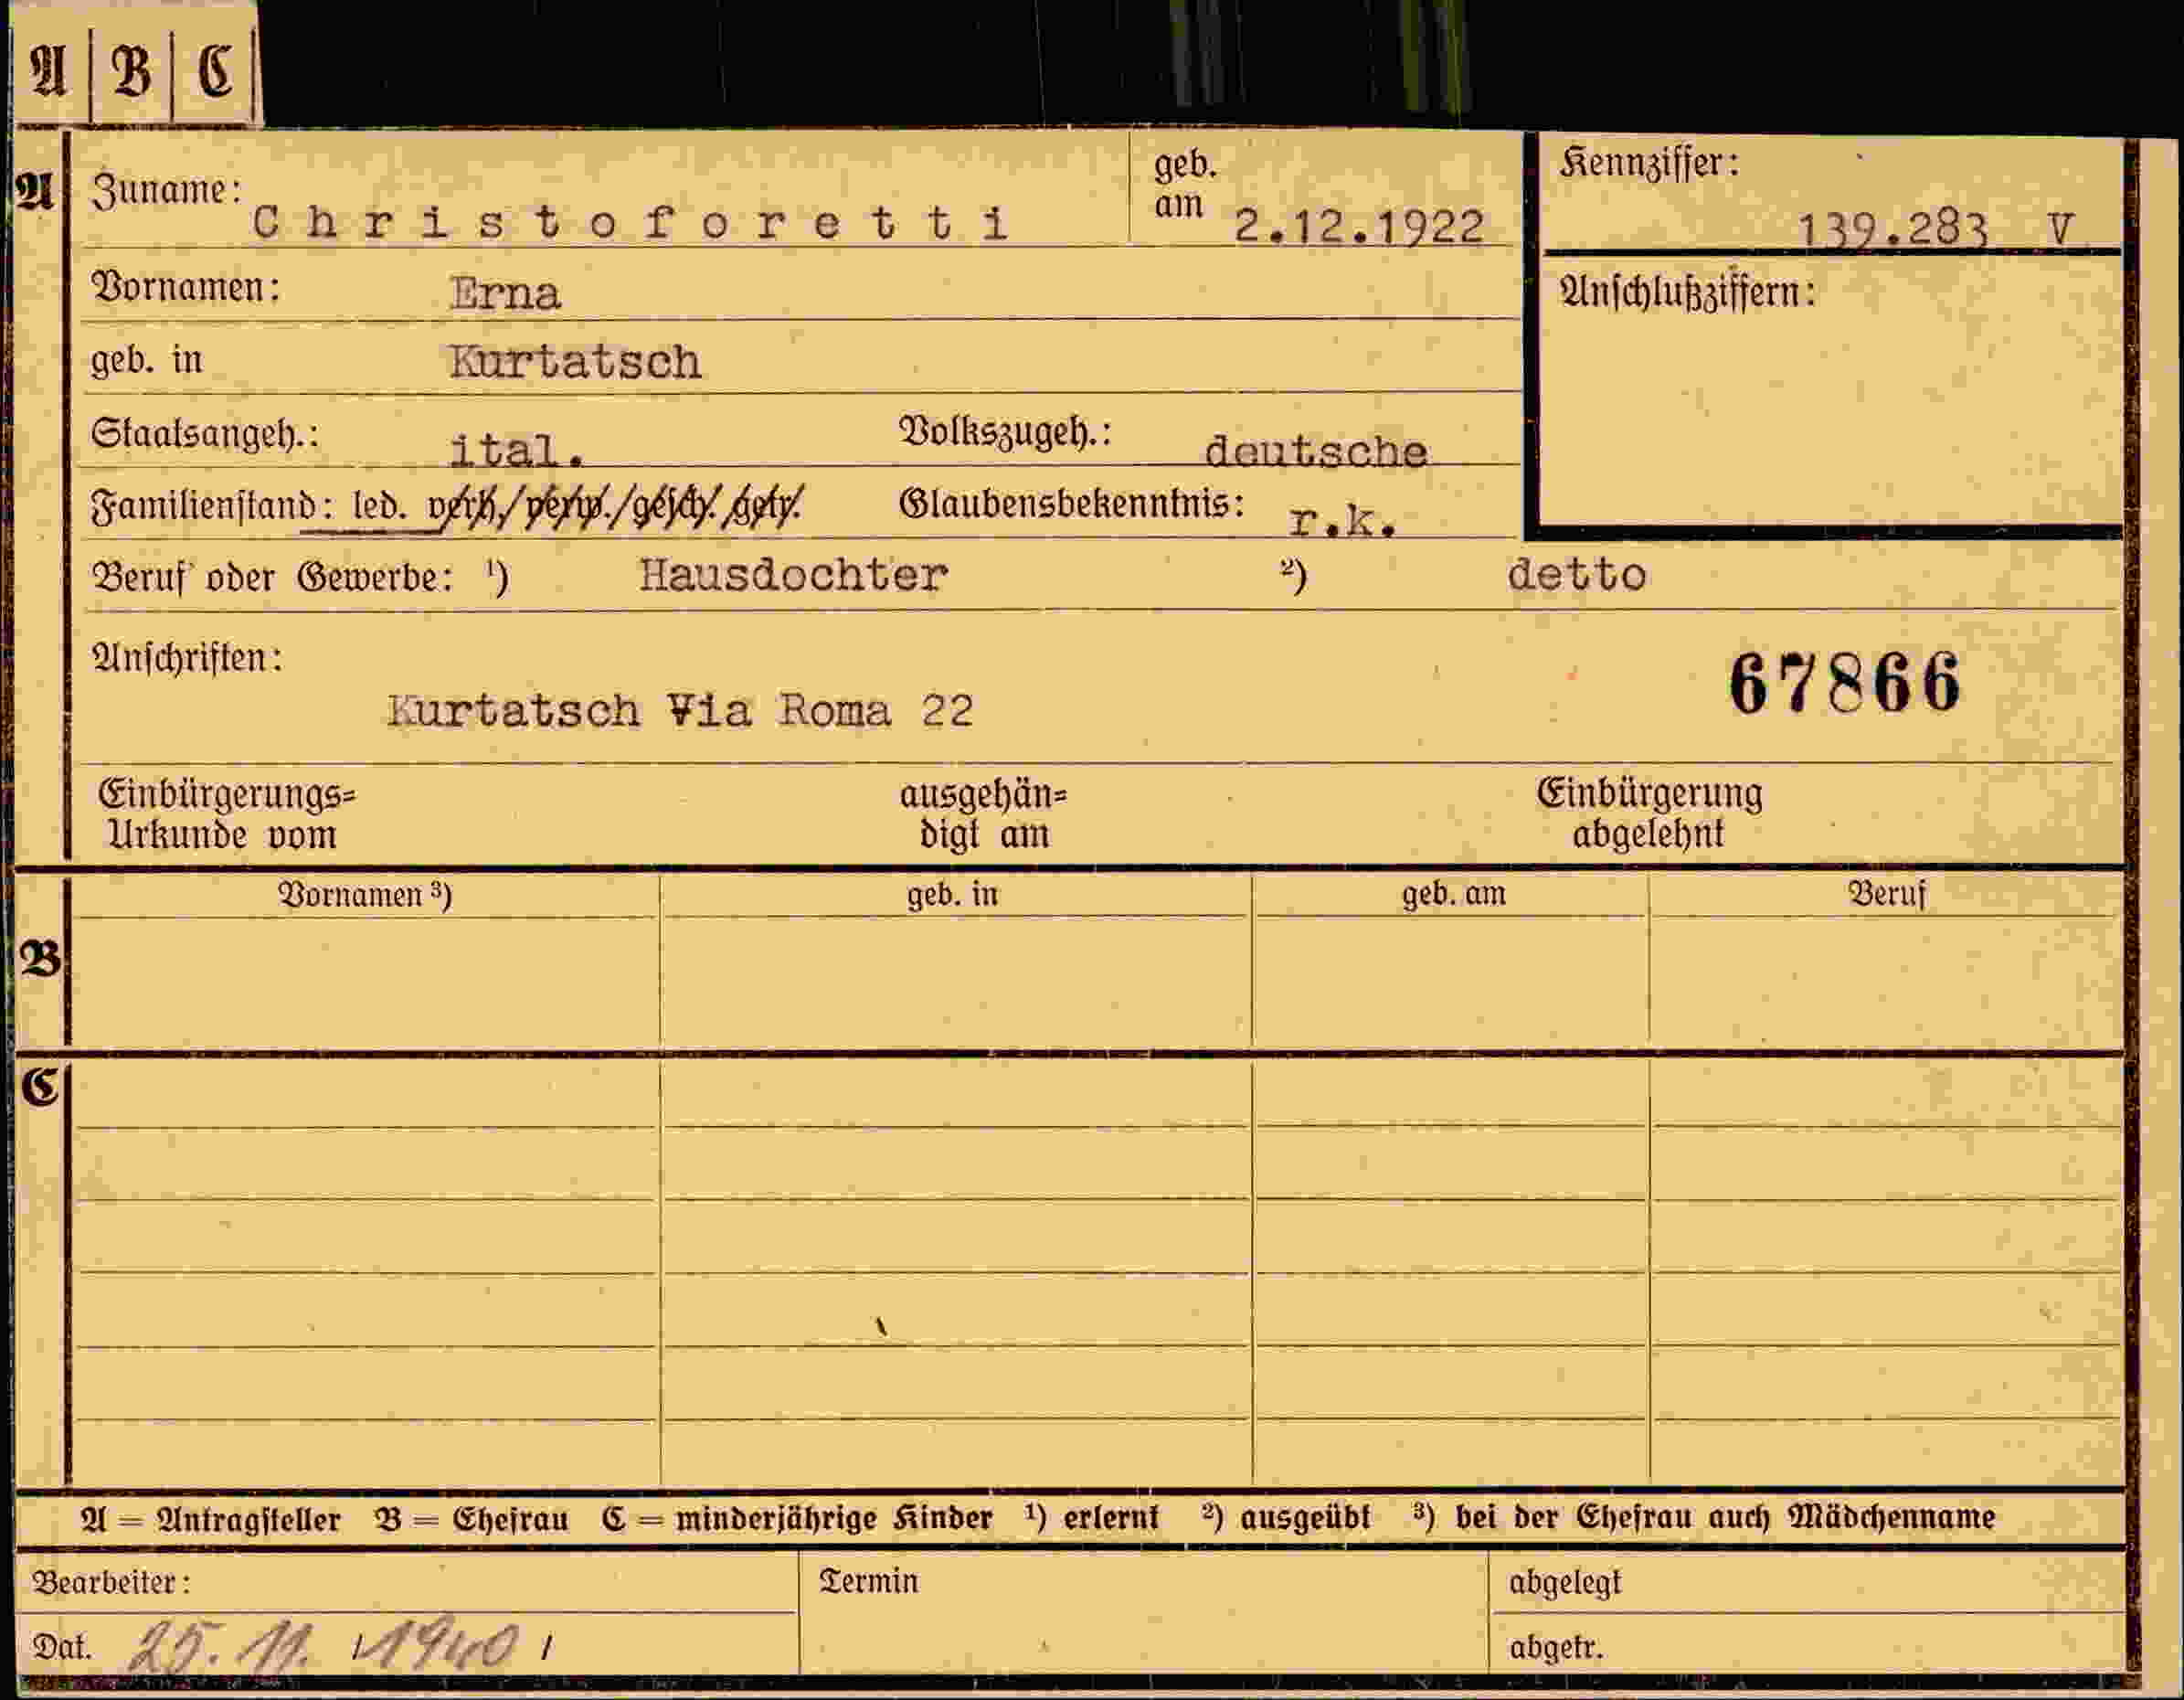 A | B | C
A Zuname: Christoforetti geb. am 2.12.1922 Kennziffer: 139.283 V
Vornamen: Erna Anschlußziffern:
geb. in Kurtatsch
Staatsangeh.: ital. Volkszugeh.: deutsche
Familienstand: led. verh./verw./gesch./getr. Glaubensbekenntnis: r.k.
Beruf oder Gewerbe: ¹) Hausdochter ²) detto
Anschriften: 67866
Kurtatsch Via Roma 22
Einbürgerungs= ausgehän= Einbürgerung
Urkunde vom digt am abgelehnt
Vornamen ³) geb. in geb. am Beruf
B
C
A = Antragsteller B = Ehefrau C = minderjährige Kinder ¹) erlernt ²) ausgeübt ³) bei der Ehefrau auch Mädchenname
Bearbeiter: Termin abgelegt
Dat. 25. 11. 1940 abgetr.